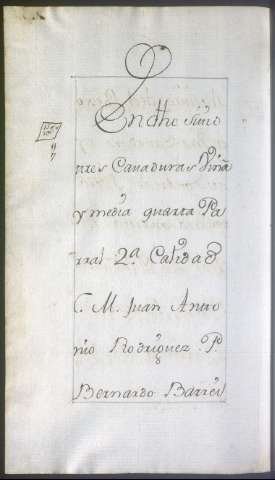 En dhe sitio
tres Cavaduras Viña
y media quarta Pa
rral 2ª Calidad
C. M. Juan Anto
nio Rodriguez. P.
Bernardo Barrei